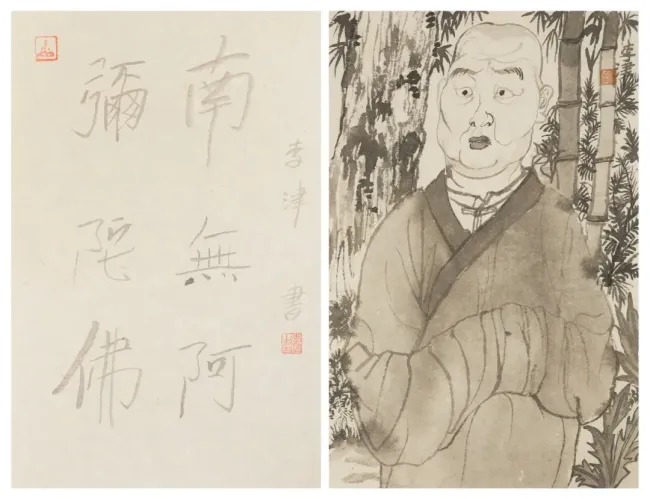 南無阿
彌陀佛
李津書
李津